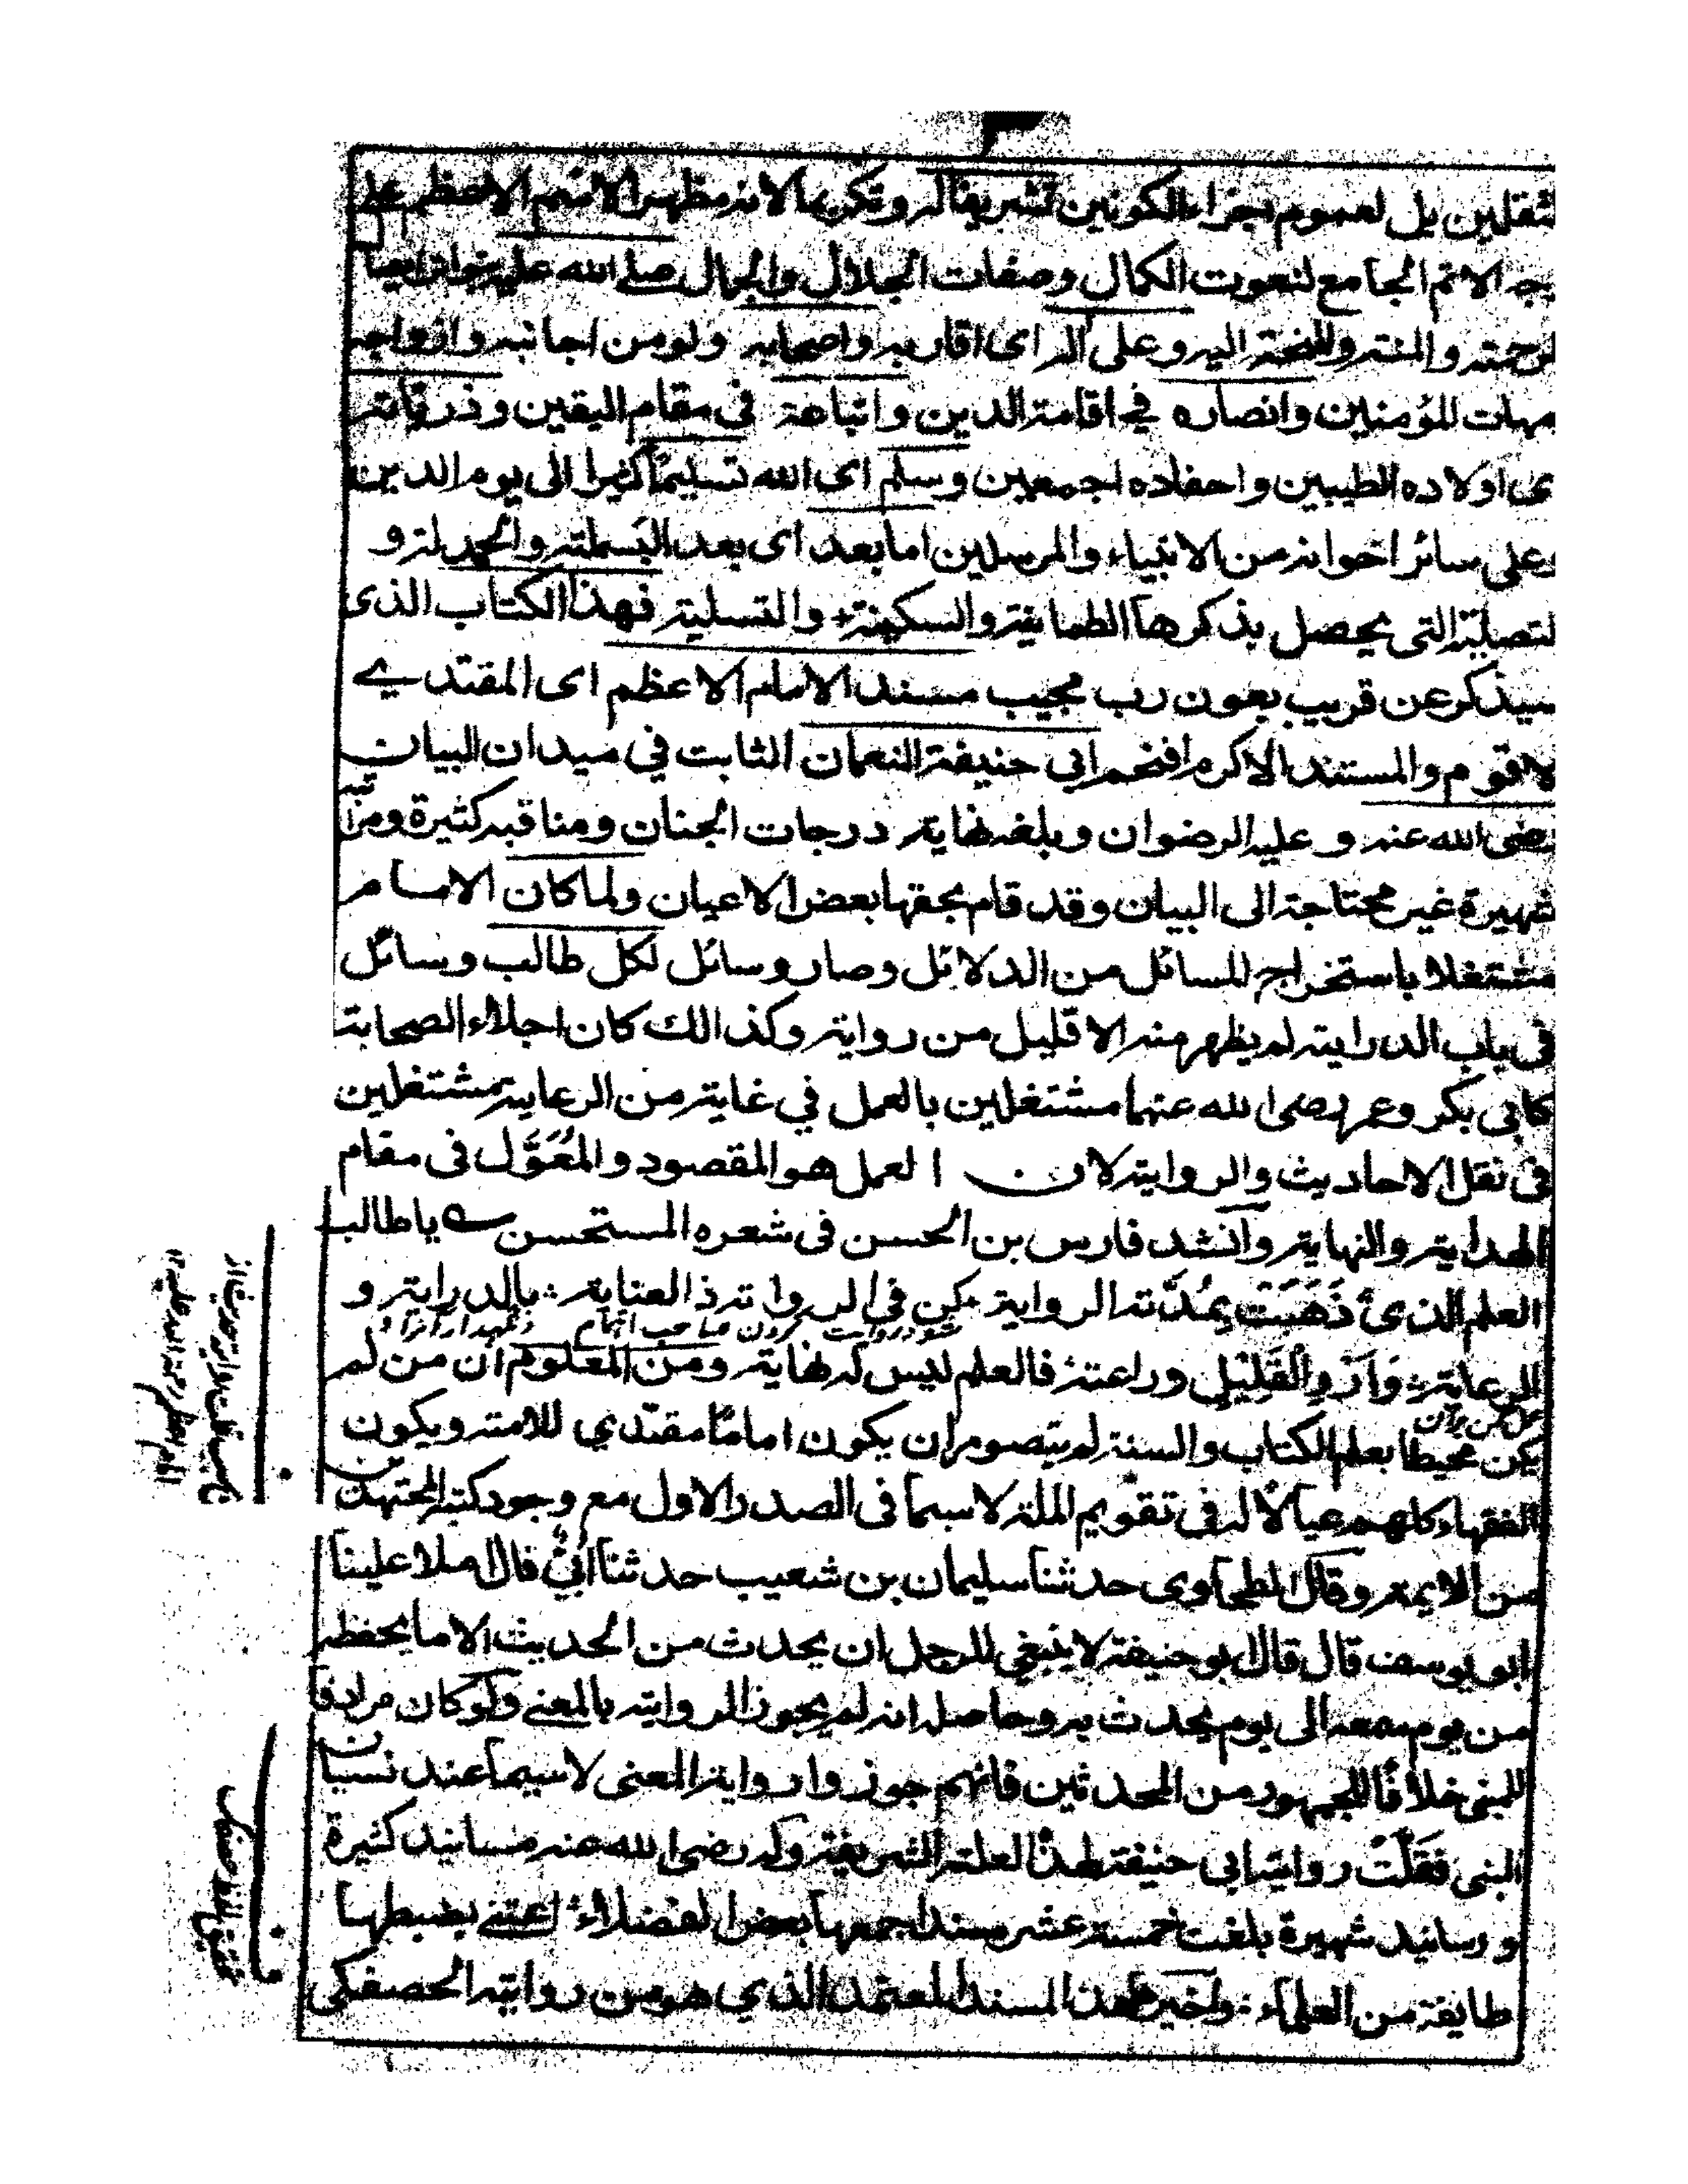 ثقلين بل لعموم اجزاء الكونين تشريفا له وتكريما لانه مظهر الاسم الاعظم على
جه الاتم الجامع لنعوت الكمال وصفات الجلال والجمال صلى الله عليه
لرحمته والمنته والمنحة اليه وعلى آله اى اقاربه واصحابه ولو من اجانبه وازواجه
مهات المؤمنين وانصاره في اقامة الدين واتباعه فى مقام اليقين وذرياته
ى اولاده الطيبين واحفاده اجمعين وسلم اى الله تسليمًا كثيرا الى يوم الدين
وعلى سائر اخوانه من الانبياء والمرسلين اما بعد اى بعد البسملته والحمدلة و
لتصلية التى يحصل بذكرها الطمانية والسكينة والتسلية فهذا الكتاب الذى
سيذكر عن قريب بعون رب مجيب مسند الامام الاعظم اى المقتدے
لاقوم والمستند الاكرم افخم ابى حنيفة النعمان الثابت في ميدان البيان
رضى الله عنه وعليه الرضوان وبلغه نهاية درجات الجنان ومناقبه كثيرة ومراتبه
شهيرة غير محتاجة الى البيان وقد قام بحقها بعض الاعيان ولما كان الامام
مشتغلا باستخراج المسائل من الدلائل وصار وسائل لكل طالب وسائل
فى باب الدراية لم يظهر منه الا قليل من رواية وكذالك كان اجلاء الصحابة
كابى بكر وعمر رضى الله عنهما مشتغلين بالعمل في غاية من الرعاية مشتغلين
فى نقل الاحاديث والرواية لان العمل هو المقصود والمُعَوَّل فى مقام
الهداية والنهاية وانشد فارس بن الحسن فى شعره المستحسن يا طالب
العلم الذى ذَهَبَت بمُدَّته الرواية كن في الرواية ذ العناية بالدراية و
الرعاية وَارْوِ القَلِيْل وراعته فالعلم ليس له نهاية ومن المعلوم ان من لم
يكن محيطا بعلم الكتاب والسنة لم يتصور ان يكون امامًا مقتدي للامته ويكون
الفقهاء كلهم عيالًا له فى تقويم الملة لاسيما فى الصدر الاول مع وجود كثير المجتهدين
من الايمة وقال الطحاوى حدثنا سليمان بن شعيب حدثنا ابى قال املا علينا
ابو يوسف قال قال ابو حنيفة لا ينبغى للرجل ان يحدث من الحديث الا ما يحفظه
من يوم سمعه الى يوم يحدث به وحاصله انه لم يجوز الرواية بالمعنے ولو كان مرادفا
للمبنى خلافًا للجمهور من المحدثين فانهم جوزوا رواية المعنى لاسيما عند نسيان
المبنى فَقَلَّتْ رواية ابى حنيفة لهذا العلة الشريفة وله رضى الله عنه مسانيد كثيرة
و رسانيد شهيرة بلغت خمسة عشر مسندا جمعها بعض الفضلاء اعتنے بضبطها
طايفة من العلماء واخير هذا المسند المعتمد الذي هو من رواية الحصفكى